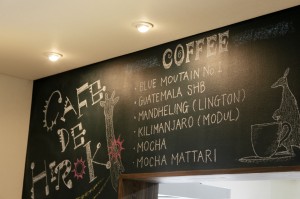 CAFE
DE
HIROKI
COFFEE
· BLUE MOUTAIN No.1
· GUATEMALA SHB
· MANDHELING (LINGTON)
· KILIMANJARO (MODUL)
· MOCHA
· MOCHA MATTARI